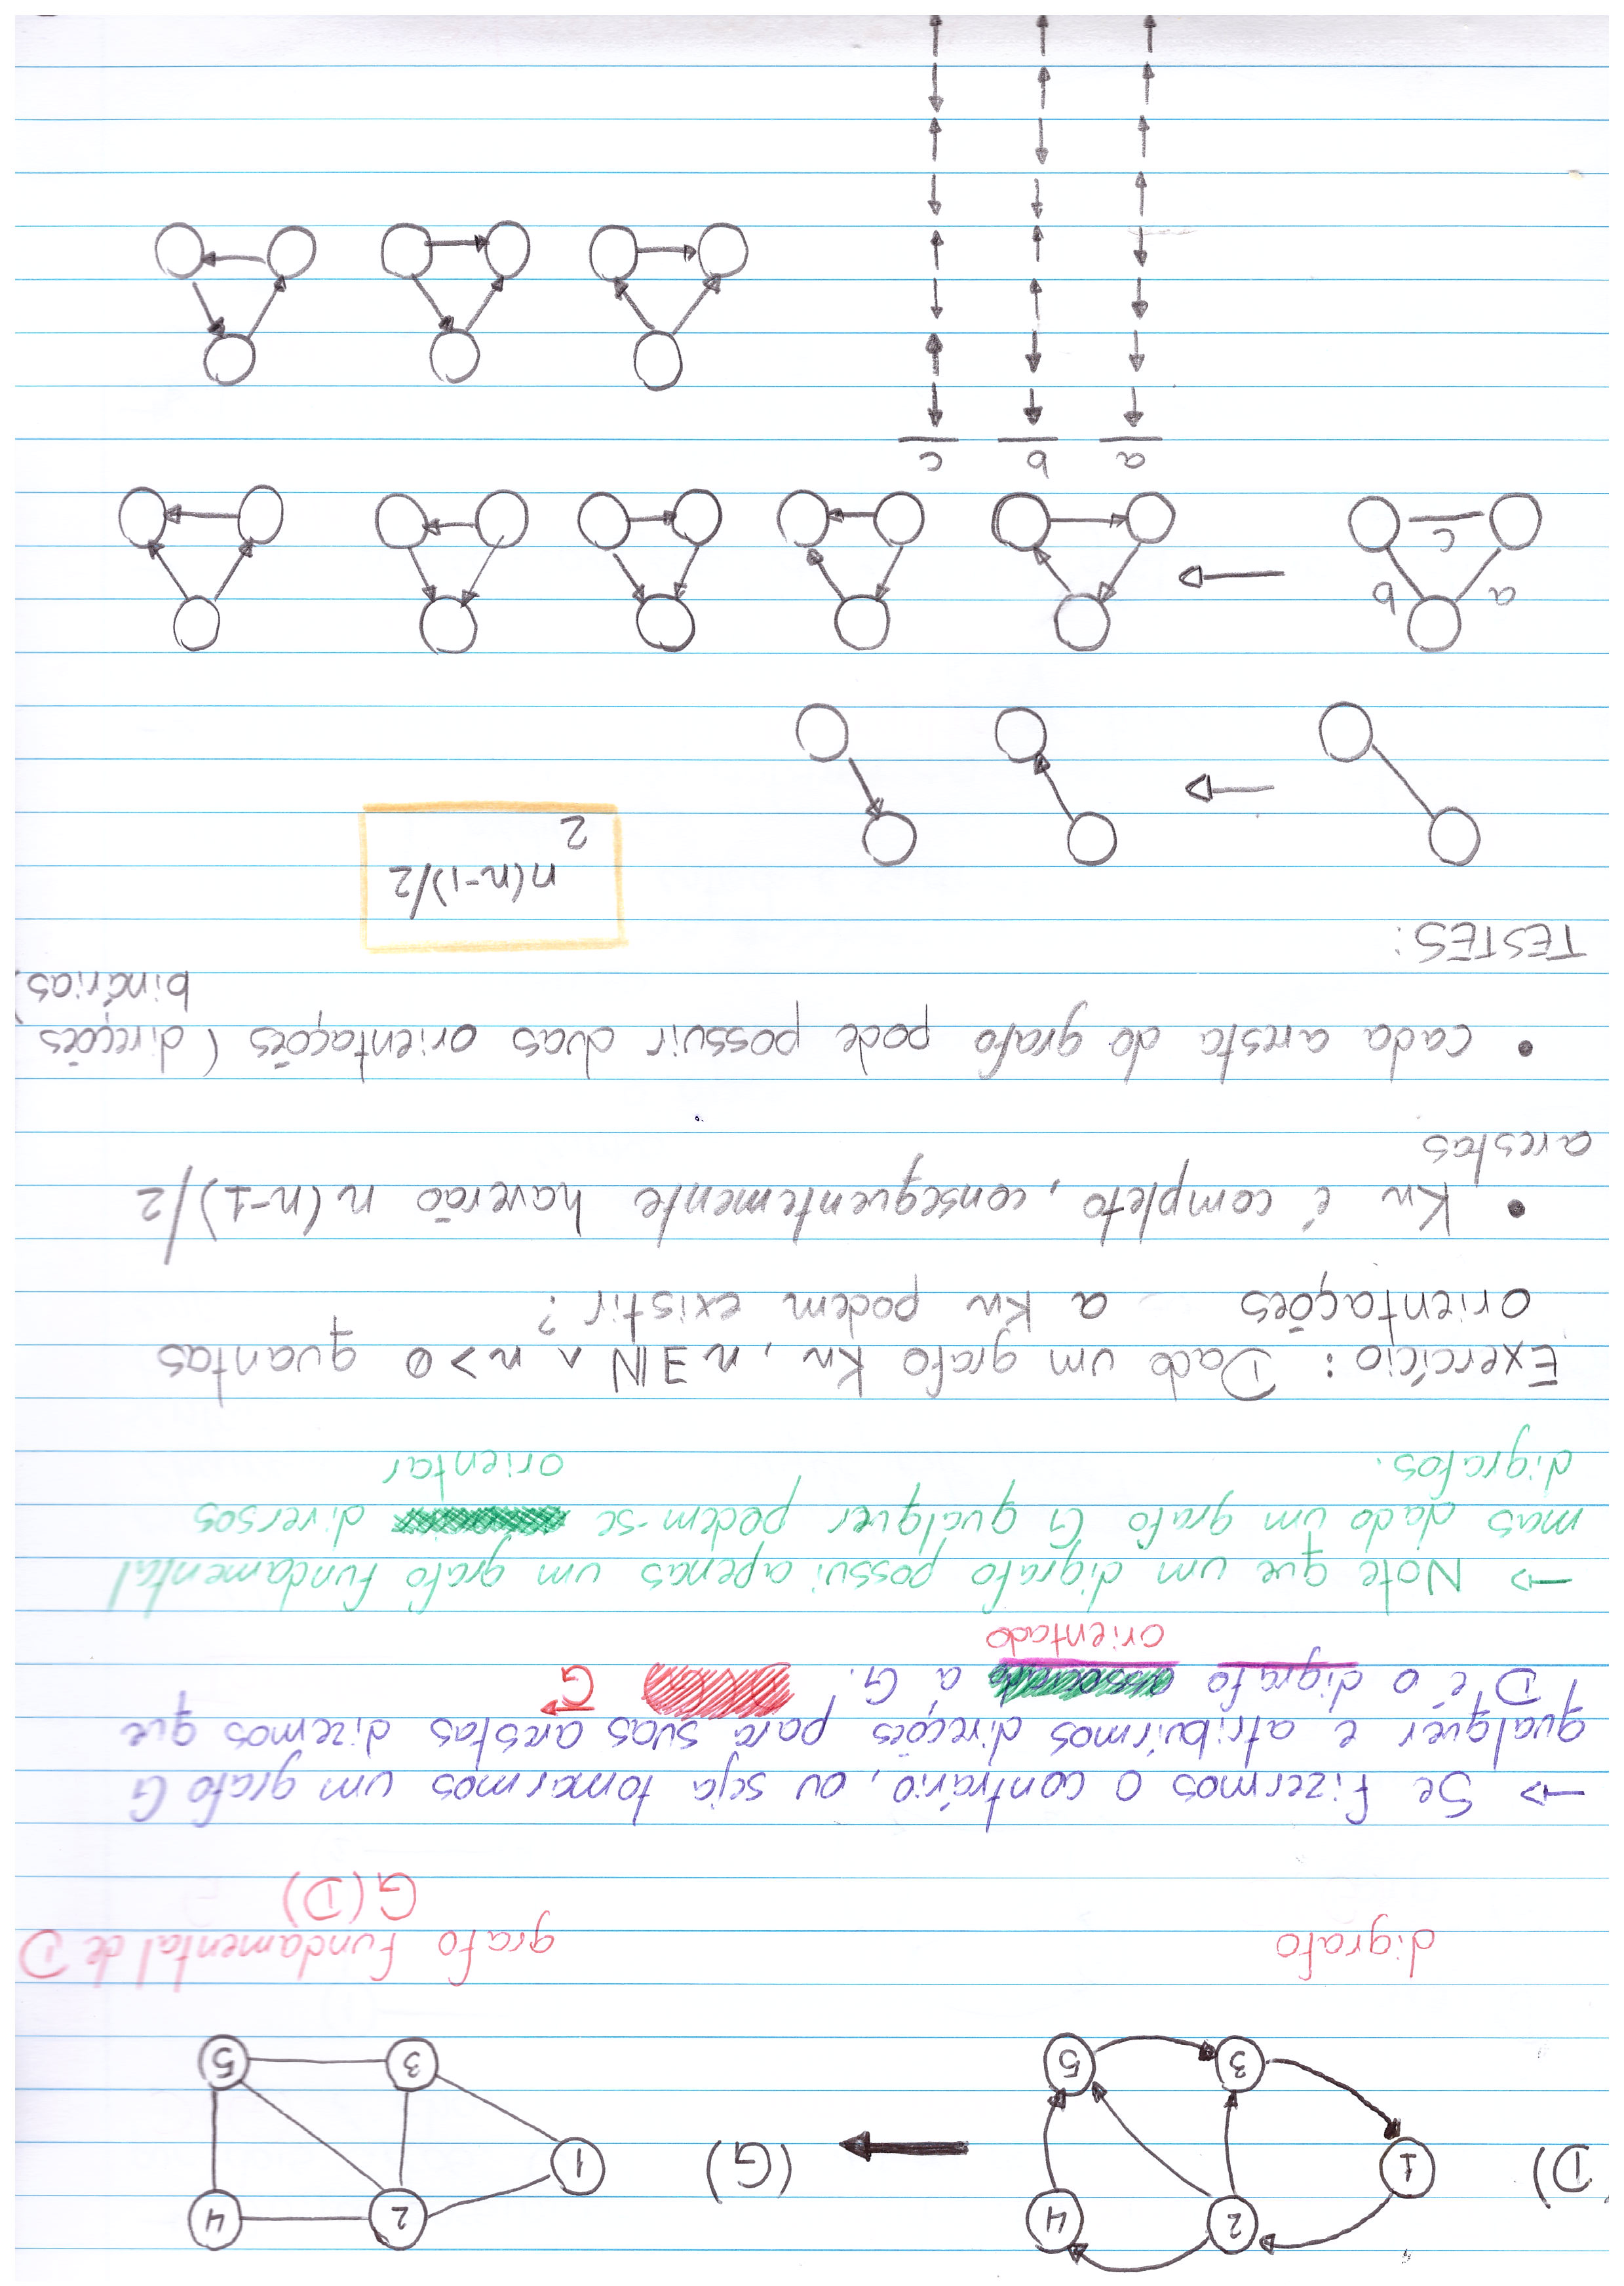 D)
1
2
4
3
5
(G)
1
2
4
3
5
digrafo
grafo fundamental de D
G(D)
→ Se fizermos o contrário, ou seja tomarmos um grafo G
qualquer e atribuírmos direções para suas arestas dizemos que
D é o digrafo á G. G⃗
orientado
→ Note que um digrafo possui apenas um grafo fundamental
mas dado um grafo G qualquer podem-se diversos
digrafos. orientar
Exercício: Dado um grafo Kn, n ∃ ℕ ∧ n > 0 quantas
orientações a Kn podem existir?
• Kn é completo, consequentemente haverão n(n-1)/2
arestas
• cada aresta do grafo pode possuir duas orientações (direções
binárias)
TESTES:
2^n(n-1)/2
a b
c
a b c
↑ ↑ ↑
↑ ↑ ↓
↑ ↓ ↑
↑ ↓ ↓
↓ ↑ ↑
↓ ↑ ↓
↓ ↓ ↑
↓ ↓ ↓